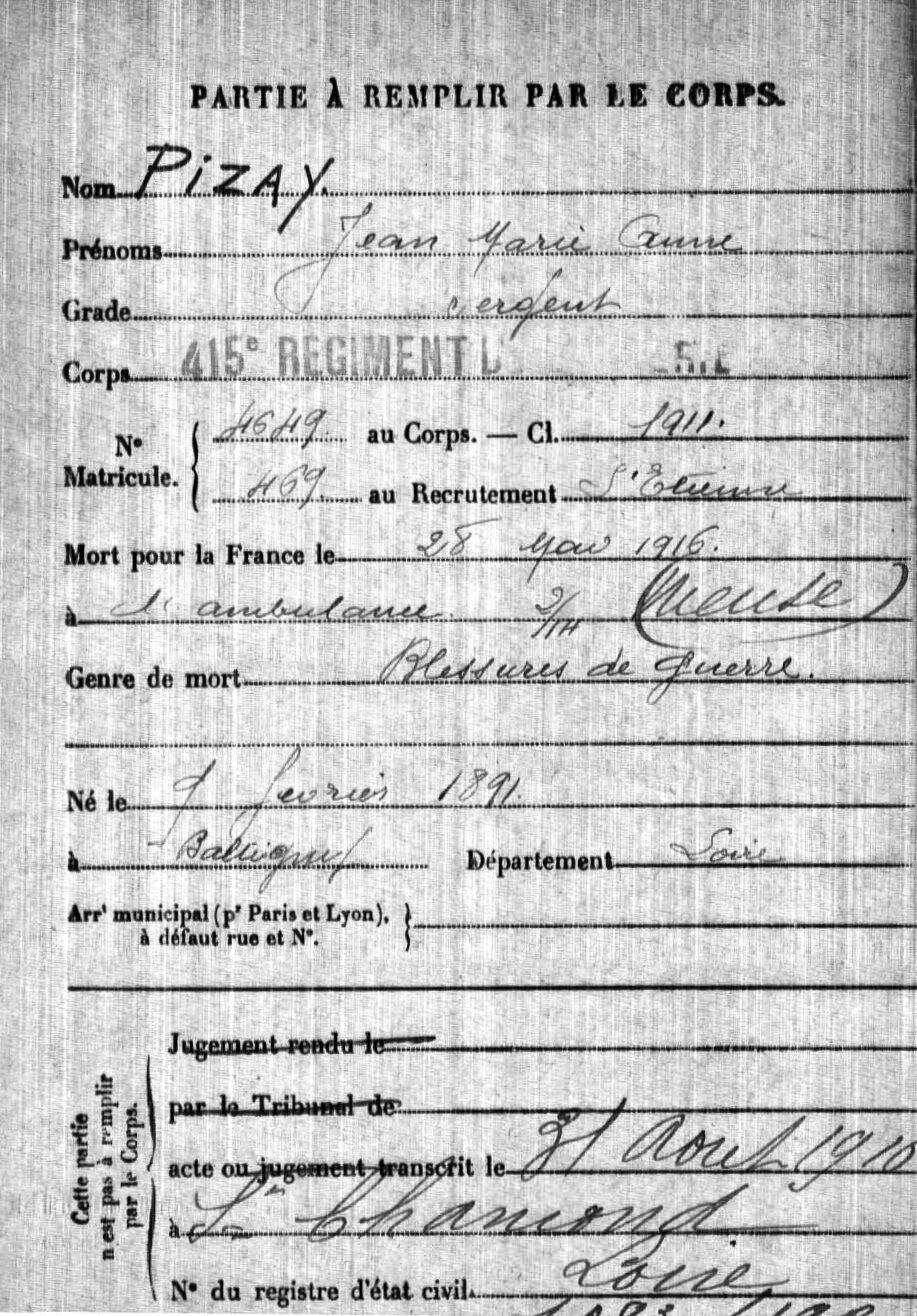 PARTIE À REMPLIR PAR LE CORPS.
Nom PiZAY.
Prénoms Jean Marie Anne
Grade Sergent
Corps 415e REGIMENT D
N° Matricule. { 4649 au Corps. — Cl. 1911.
469. au Recrutement St Etienne
Mort pour la France le 28 Mai 1916.
à l'ambulance (Meuse)
Genre de mort Blessures de guerre.
Né le 9 février 1891.
à Département Loire
Arrt municipal (pr Paris et Lyon), }
à défaut rue et N°.
Cette partie
n'est pas à remplir
par le Corps.
Jugement rendu le
par le Tribunal de
acte ou jugement transcrit le 31 Aout 1910
à St Chamond
Loire
N° du registre d'état civil